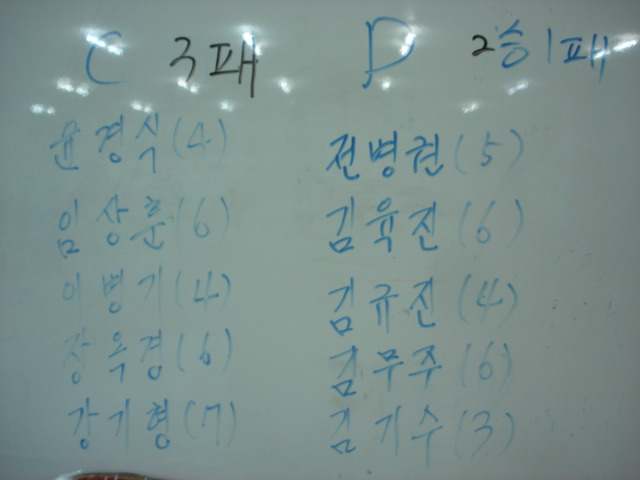 C 3패
윤경식(4)
임상훈(6)
이병기(4)
장옥경(6)
강기형(7)
D 2승1패
전병권(5)
김육진(6)
김규진(4)
김무주(6)
김기수(3)